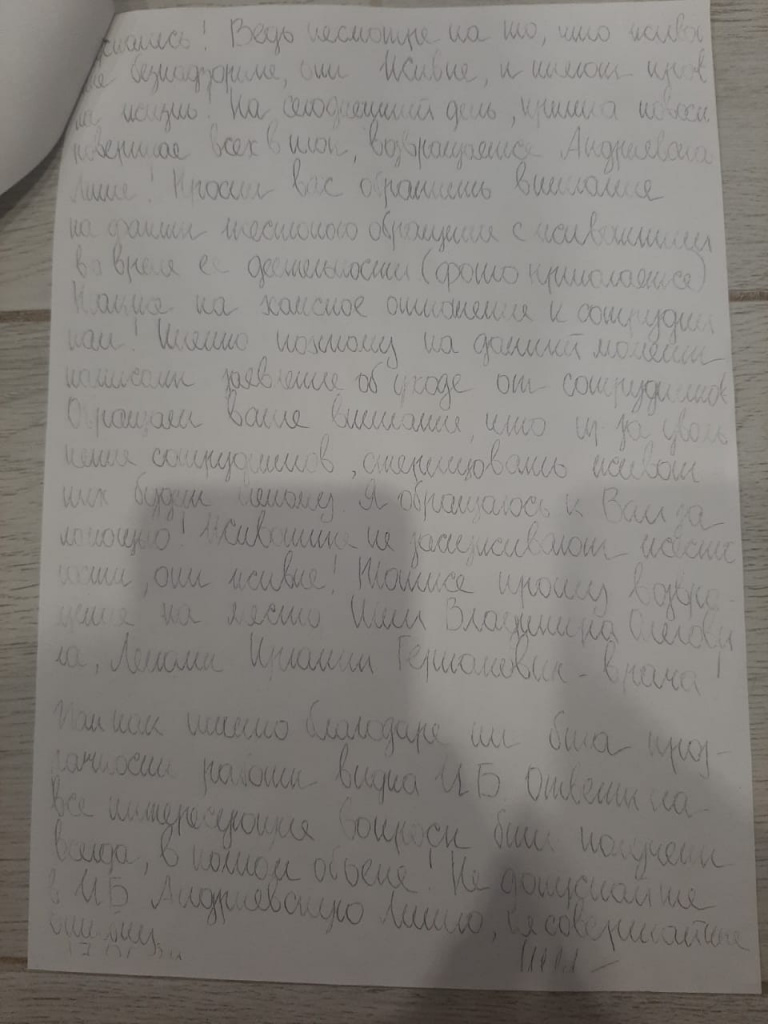 ! Ведь несмотря на то, что живот
безнадзорные, они Живые, и имеют прав
на жизнь! На сегодняшний день, пришла новость
всех в шок, возвращается Андриевская
! Просим вас обратить внимание
на факты жестокого обращения с животными
во время её деятельности (фото прилагается)
Также на хамское отношение к сотрудни
кам! Именно поэтому на данный момент
написали заявление об уходе от сотрудников
Обращаем ваше внимание, что из-за уволь
нения сотрудников, стерилизовать живот
ных будет некому. Я обращаюсь к Вам за
помощью! Животные не заслуживают жесто
кости, они живые! Также прошу возвра-
щение на место Владимира Олегови
ча, врача!
Так как именно благодаря им была проз-
рачность работы видна ЦБ. Ответы на
все интересующие вопросы были получены
всегда, в полном объёме! Не допускайте
в ЦБ Андриевскую, не совершайте
ошибку